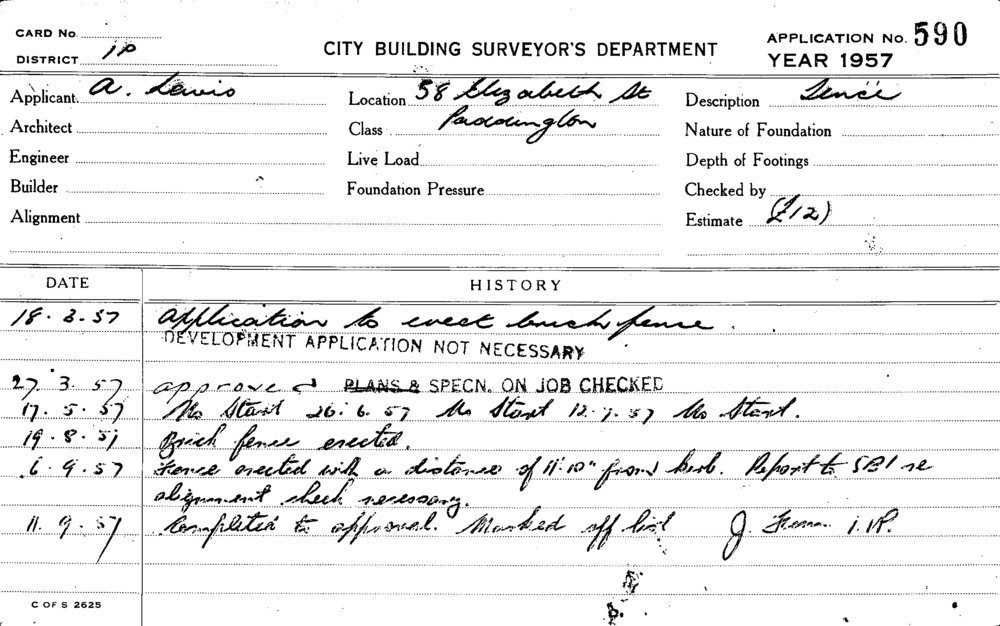 CARD No.
DISTRICT 1P
CITY BUILDING SURVEYOR'S DEPARTMENT
APPLICATION No. 590
YEAR 1957
Applicant. A. Lewis
Location 58 Elizabeth St
Description Fence
Architect
Class Paddington
Nature of Foundation
Engineer
Live Load
Depth of Footings
Builder
Foundation Pressure
Checked by
Alignment
Estimate (£12)
DATE HISTORY
18.3.57 Application to erect brick fence.
DEVELOPMENT APPLICATION NOT NECESSARY
27.3.57 approved PLANS & SPECN. ON JOB CHECKED
17.5.57 No Start 26.6.57 No Start 12.7.57 No Start.
19.8.57 Brick fence erected.
6.9.57 Fence erected with a distance of 11'.10" from kerb. Report to SBI re
alignment check necessary.
11.9.57 Completed to approval. Marked off list J. 1.P.
C OF S 2625